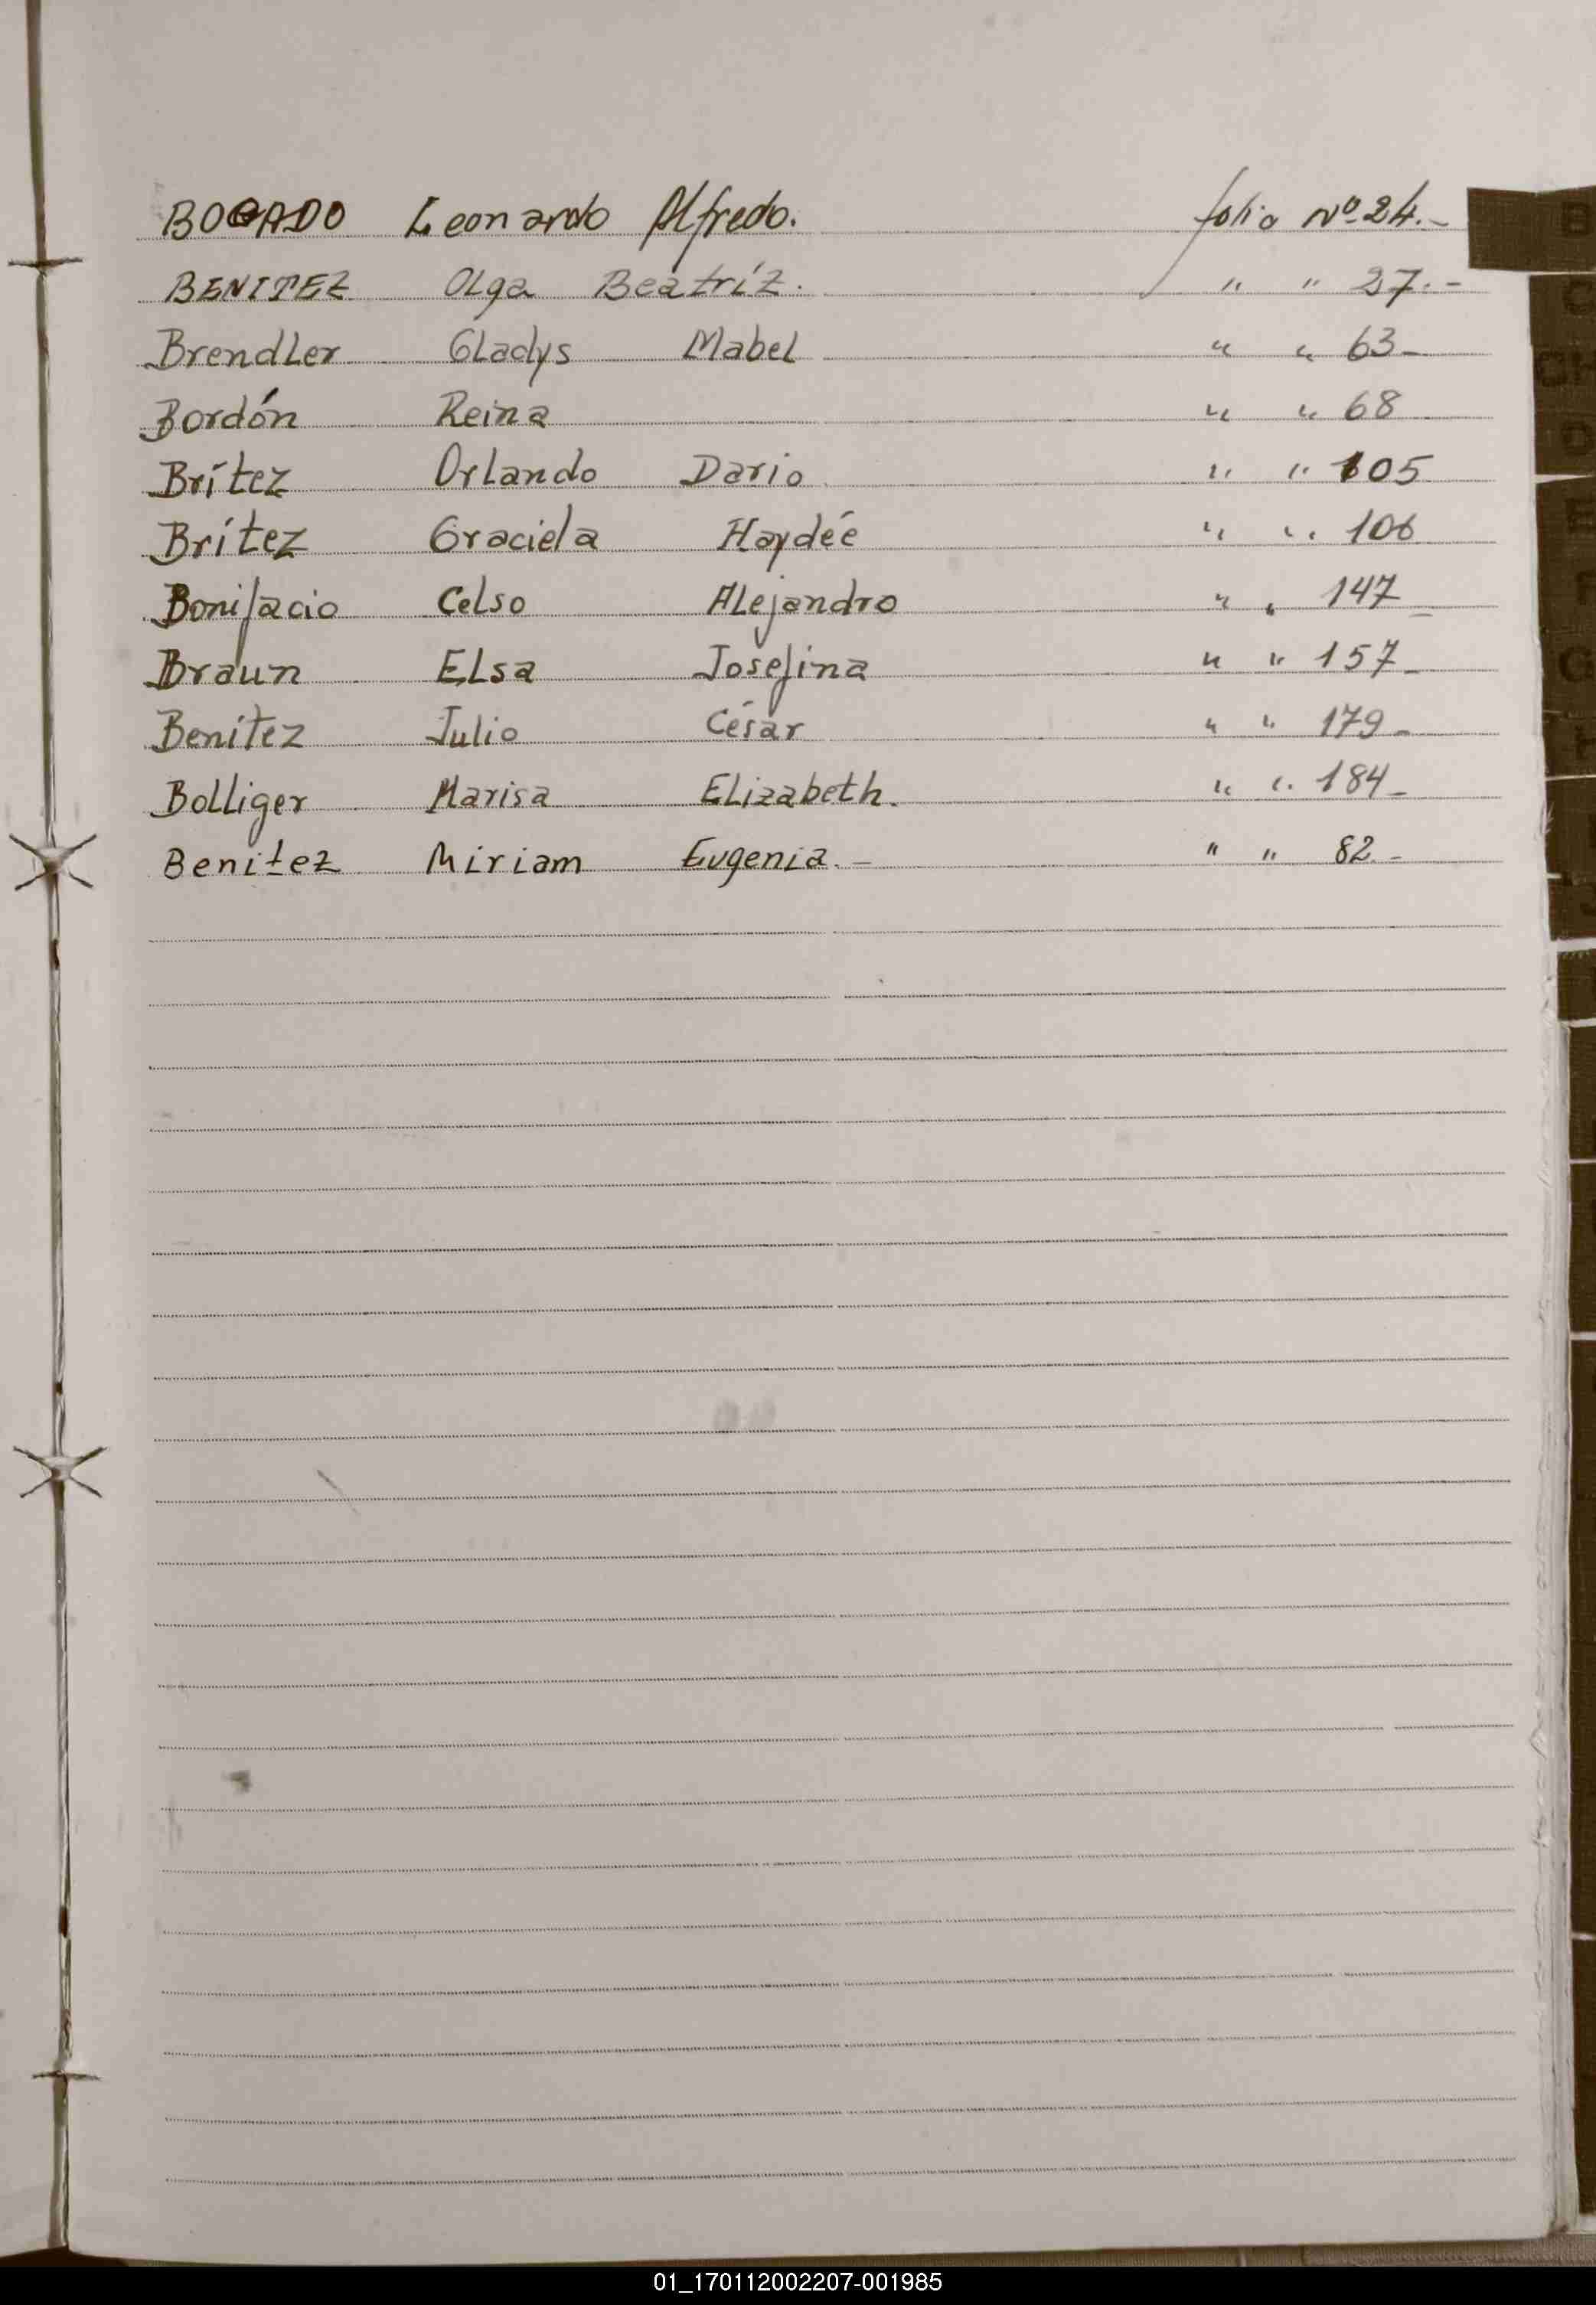 BOGADO Leonardo Alfredo. folio Nº 24.-
BENITEZ Olga Beatríz. " " 27.-
Brendler Gladys Mabel " " 63-
Bordón Reina " " 68
Brítez Orlando Dario " " 105
Brítez Graciela Haydée " " 106
Bonifacio Celso Alejandro " " 147-
Braun Elsa Josefina " " 157-
Benítez Julio César " " 179-
Bolliger Marisa Elizabeth. " " 184-
Benitez Miriam Eugenia.- " " 82.-
01_170112002207-001985